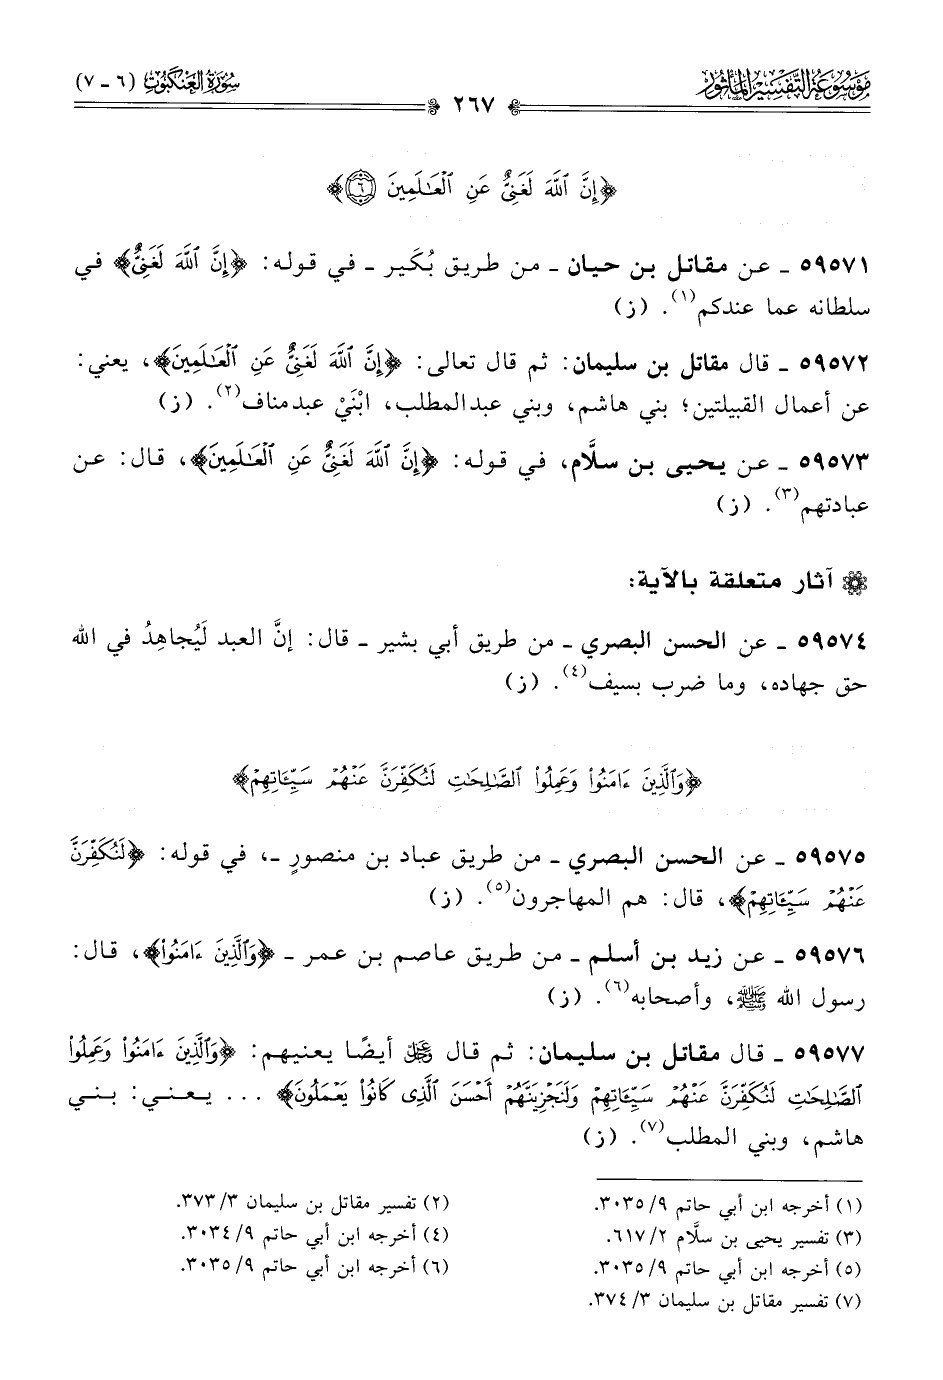 موسوعة التفسير المأثور
سورة العنكبوت (٦ - ٧)
٢٦٧
﴿إِنَّ ٱللَّهَ لَغَنِىٌّ عَنِ ٱلْعَـٰلَمِينَ ٦﴾
٥٩٥٧١ ـ عن مقاتل بن حيان ـ من طريق بُكَير ـ في قوله: ﴿إِنَّ ٱللَّهَ لَغَنِىٌّ﴾ في
سلطانه عما عندكم(١). (ز)
٥٩٥٧٢ ـ قال مقاتل بن سليمان: ثم قال تعالى: ﴿إِنَّ ٱللَّهَ لَغَنِىٌّ عَنِ ٱلْعَـٰلَمِينَ﴾، يعني:
عن أعمال القبيلتين؛ بني هاشم، وبني عبدالمطلب، ابْنَيْ عبدمناف(٢). (ز)
٥٩٥٧٣ ـ عن يحيى بن سلَّام، في قوله: ﴿إِنَّ ٱللَّهَ لَغَنِىٌّ عَنِ ٱلْعَـٰلَمِينَ﴾، قال: عن
عبادتهم(٣). (ز)
آثار متعلقة بالآية:
٥٩٥٧٤ ـ عن الحسن البصري ـ من طريق أبي بشير ـ قال: إنَّ العبد لَيُجاهِدُ في الله
حق جهاده، وما ضرب بسيف(٤). (ز)
﴿وَٱلَّذِينَ ءَامَنُوا۟ وَعَمِلُوا۟ ٱلصَّـٰلِحَـٰتِ لَنُكَفِّرَنَّ عَنْهُمْ سَيِّـَٔاتِهِمْ﴾
٥٩٥٧٥ ـ عن الحسن البصري ـ من طريق عباد بن منصورٍ ـ، في قوله: ﴿لَنُكَفِّرَنَّ
عَنْهُمْ سَيِّـَٔاتِهِمْ﴾، قال: هم المهاجرون(٥). (ز)
٥٩٥٧٦ ـ عن زيد بن أسلم ـ من طريق عاصم بن عمر ـ ﴿وَٱلَّذِينَ ءَامَنُوا۟﴾، قال:
رسول الله ﷺ، وأصحابه(٦). (ز)
٥٩٥٧٧ ـ قال مقاتل بن سليمان: ثم قال ﷿ أيضًا يعنيهم: ﴿وَٱلَّذِينَ ءَامَنُوا۟ وَعَمِلُوا۟
ٱلصَّـٰلِحَـٰتِ لَنُكَفِّرَنَّ عَنْهُمْ سَيِّـَٔاتِهِمْ وَلَنَجْزِيَنَّهُمْ أَحْسَنَ ٱلَّذِى كَانُوا۟ يَعْمَلُونَ﴾ ... يعني: بني
هاشم، وبني المطلب(٧). (ز)
(١) أخرجه ابن أبي حاتم ٩/ ٣٠٣٥.
(٢) تفسير مقاتل بن سليمان ٣/ ٣٧٣.
(٣) تفسير يحيى بن سلَّام ٢/ ٦١٧.
(٤) أخرجه ابن أبي حاتم ٩/ ٣٠٣٤.
(٥) أخرجه ابن أبي حاتم ٩/ ٣٠٣٥.
(٦) أخرجه ابن أبي حاتم ٩/ ٣٠٣٥.
(٧) تفسير مقاتل بن سليمان ٣/ ٣٧٤.